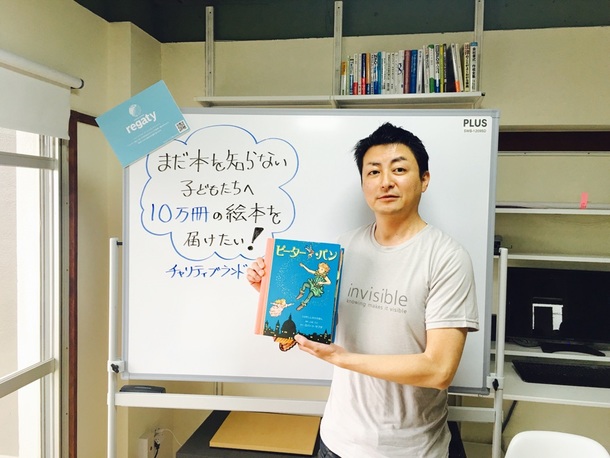 regaty
PLUS
まだ本を知らない
子どもたちへ
10万冊の絵本を
届けたい!
チャリティブランド
ピーター・パン
invisible
knowing makes it visible